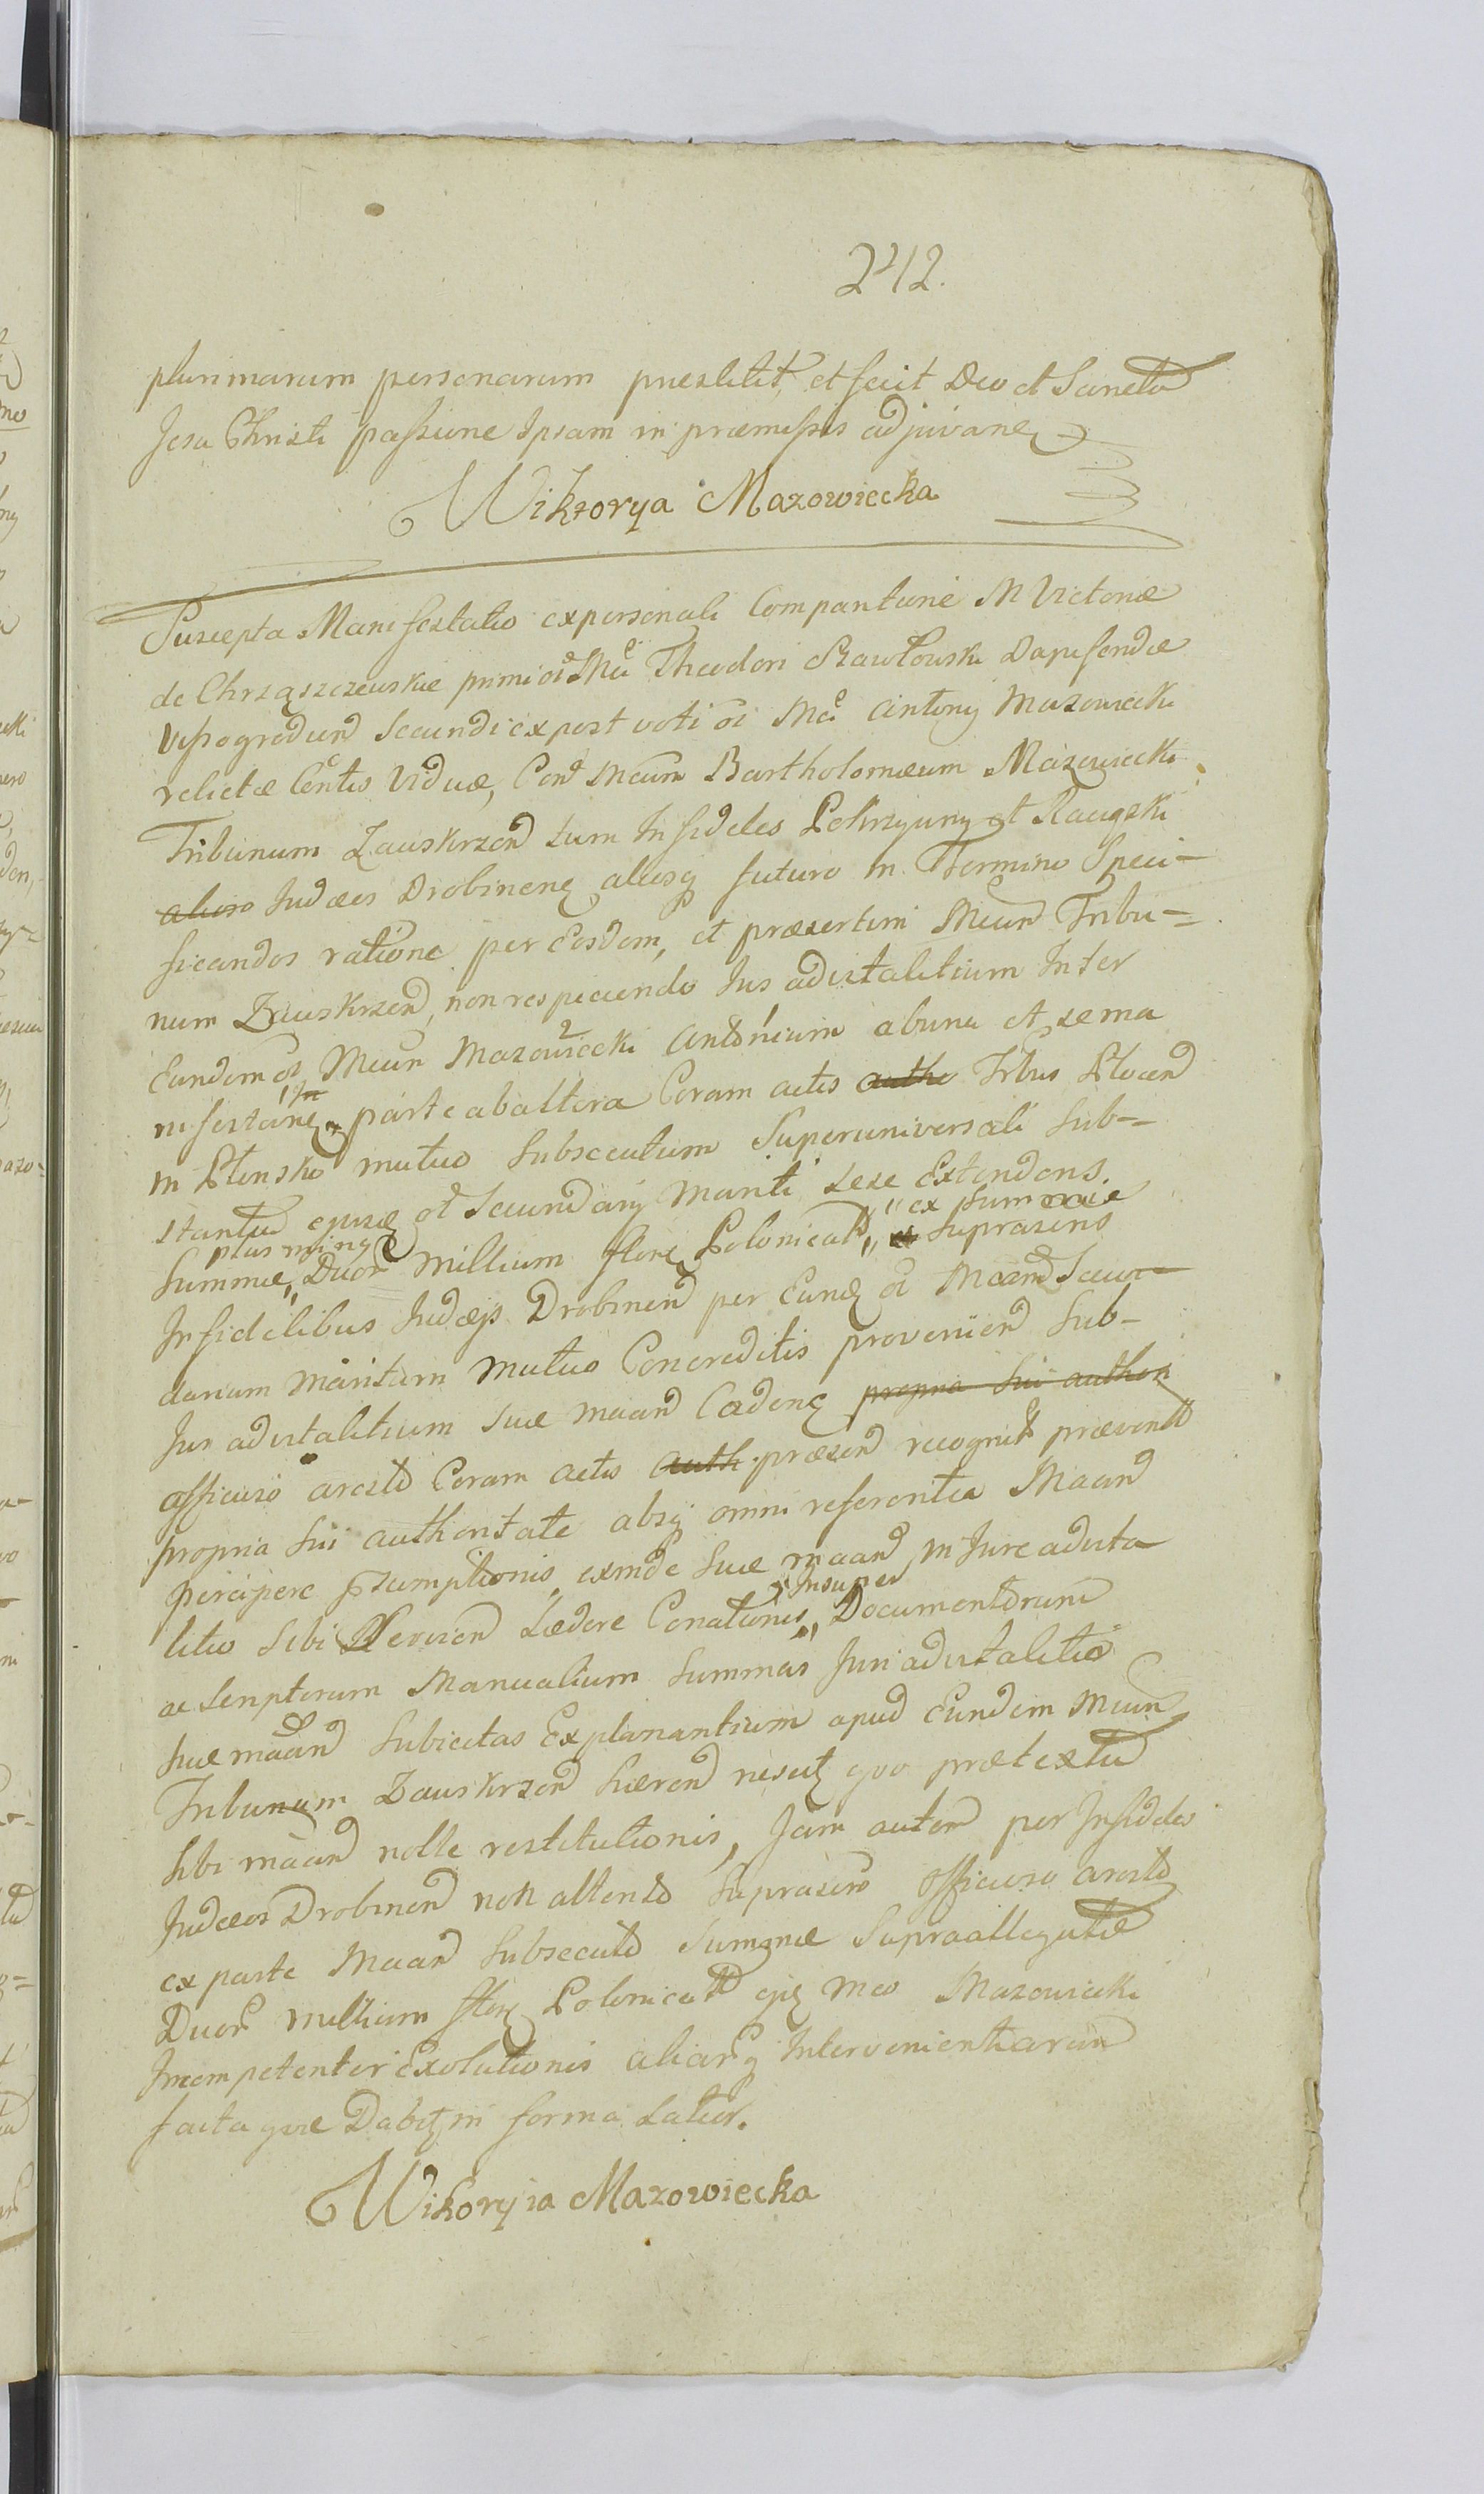 242.
plurimarum personarum praestitit, et fecit Deo et Sancta
Jesu Christi passione Ipsam in praemissis adjuvane
Wiktorya Mazowiecka
Suscepta Manifestatio ex personali Comparitione M Victoriae
de Chrząszczewskie primi oi Mci Theodori Szawłowski Dapiferidae
Wyszogroden Secundi ex post voti oi Mci Antonij Mazowiecki
relictae Contis Viduae, Con Mcum Bartholomeum Mazowiecki
Tribunum Zauskrzen tum Infideles et
alios Judaeos Drobinens aliosq futuro in Termino Speci-
ficandos ratione per Eosdem, et praesertim Mcum Tribu-
num Zauskrzen, non respiciendo Jus advitalitium Inter
Eundem oi Mcum Mazowiecki 2 Antonium 1 ab una et sema
nifestane parte ab altera Coram actis autho Trbus Plocen
in Płonsko mutuo Subsecutum Super universali Sub-
stantia ejusq oi Secundarij Mariti sese Extendens.
plus minus "ex Summae
Summae, Duor Millium flore Polonicat, Suprasens
Infidelibus Judaeis Drobinen per Eund oi Mcum Secun-
darium Maritum Mutuo Concreditis provenien Sub-
Jus advitalitium Suae Maand Cadens propria Sui author
officioso aresto Coram actis auth. praesen recognit praevento
propria Sui authoritate absq omni referentia Maand
percipere praesumptionis, exinde Suae maand, in Jure advita
"Insuper
litio Sibi Servien Laedere Conationis,, Documentorum
ac Scriptorum Manualium Summas Juri advitalitio
Suae maand Subiectas Explanantium apud Eundem Mcum
Tribunum Zauskrzen haeren nescit quo praetextu
Sibi maand nolle restitutionis, Jam autem per Infideles
Judaeos Drobinen non attento Supraseno officioso aresto
ex parte Maand Subsecuto Summae Supraallegatae
Duor Millium flore Polonicat ejq Mco Mazowiecki
Incompetenter Exolutionis aliarq Intervenientiarum
facta quae Dabit in forma Latior.
Wiktoryia Mazowiecka